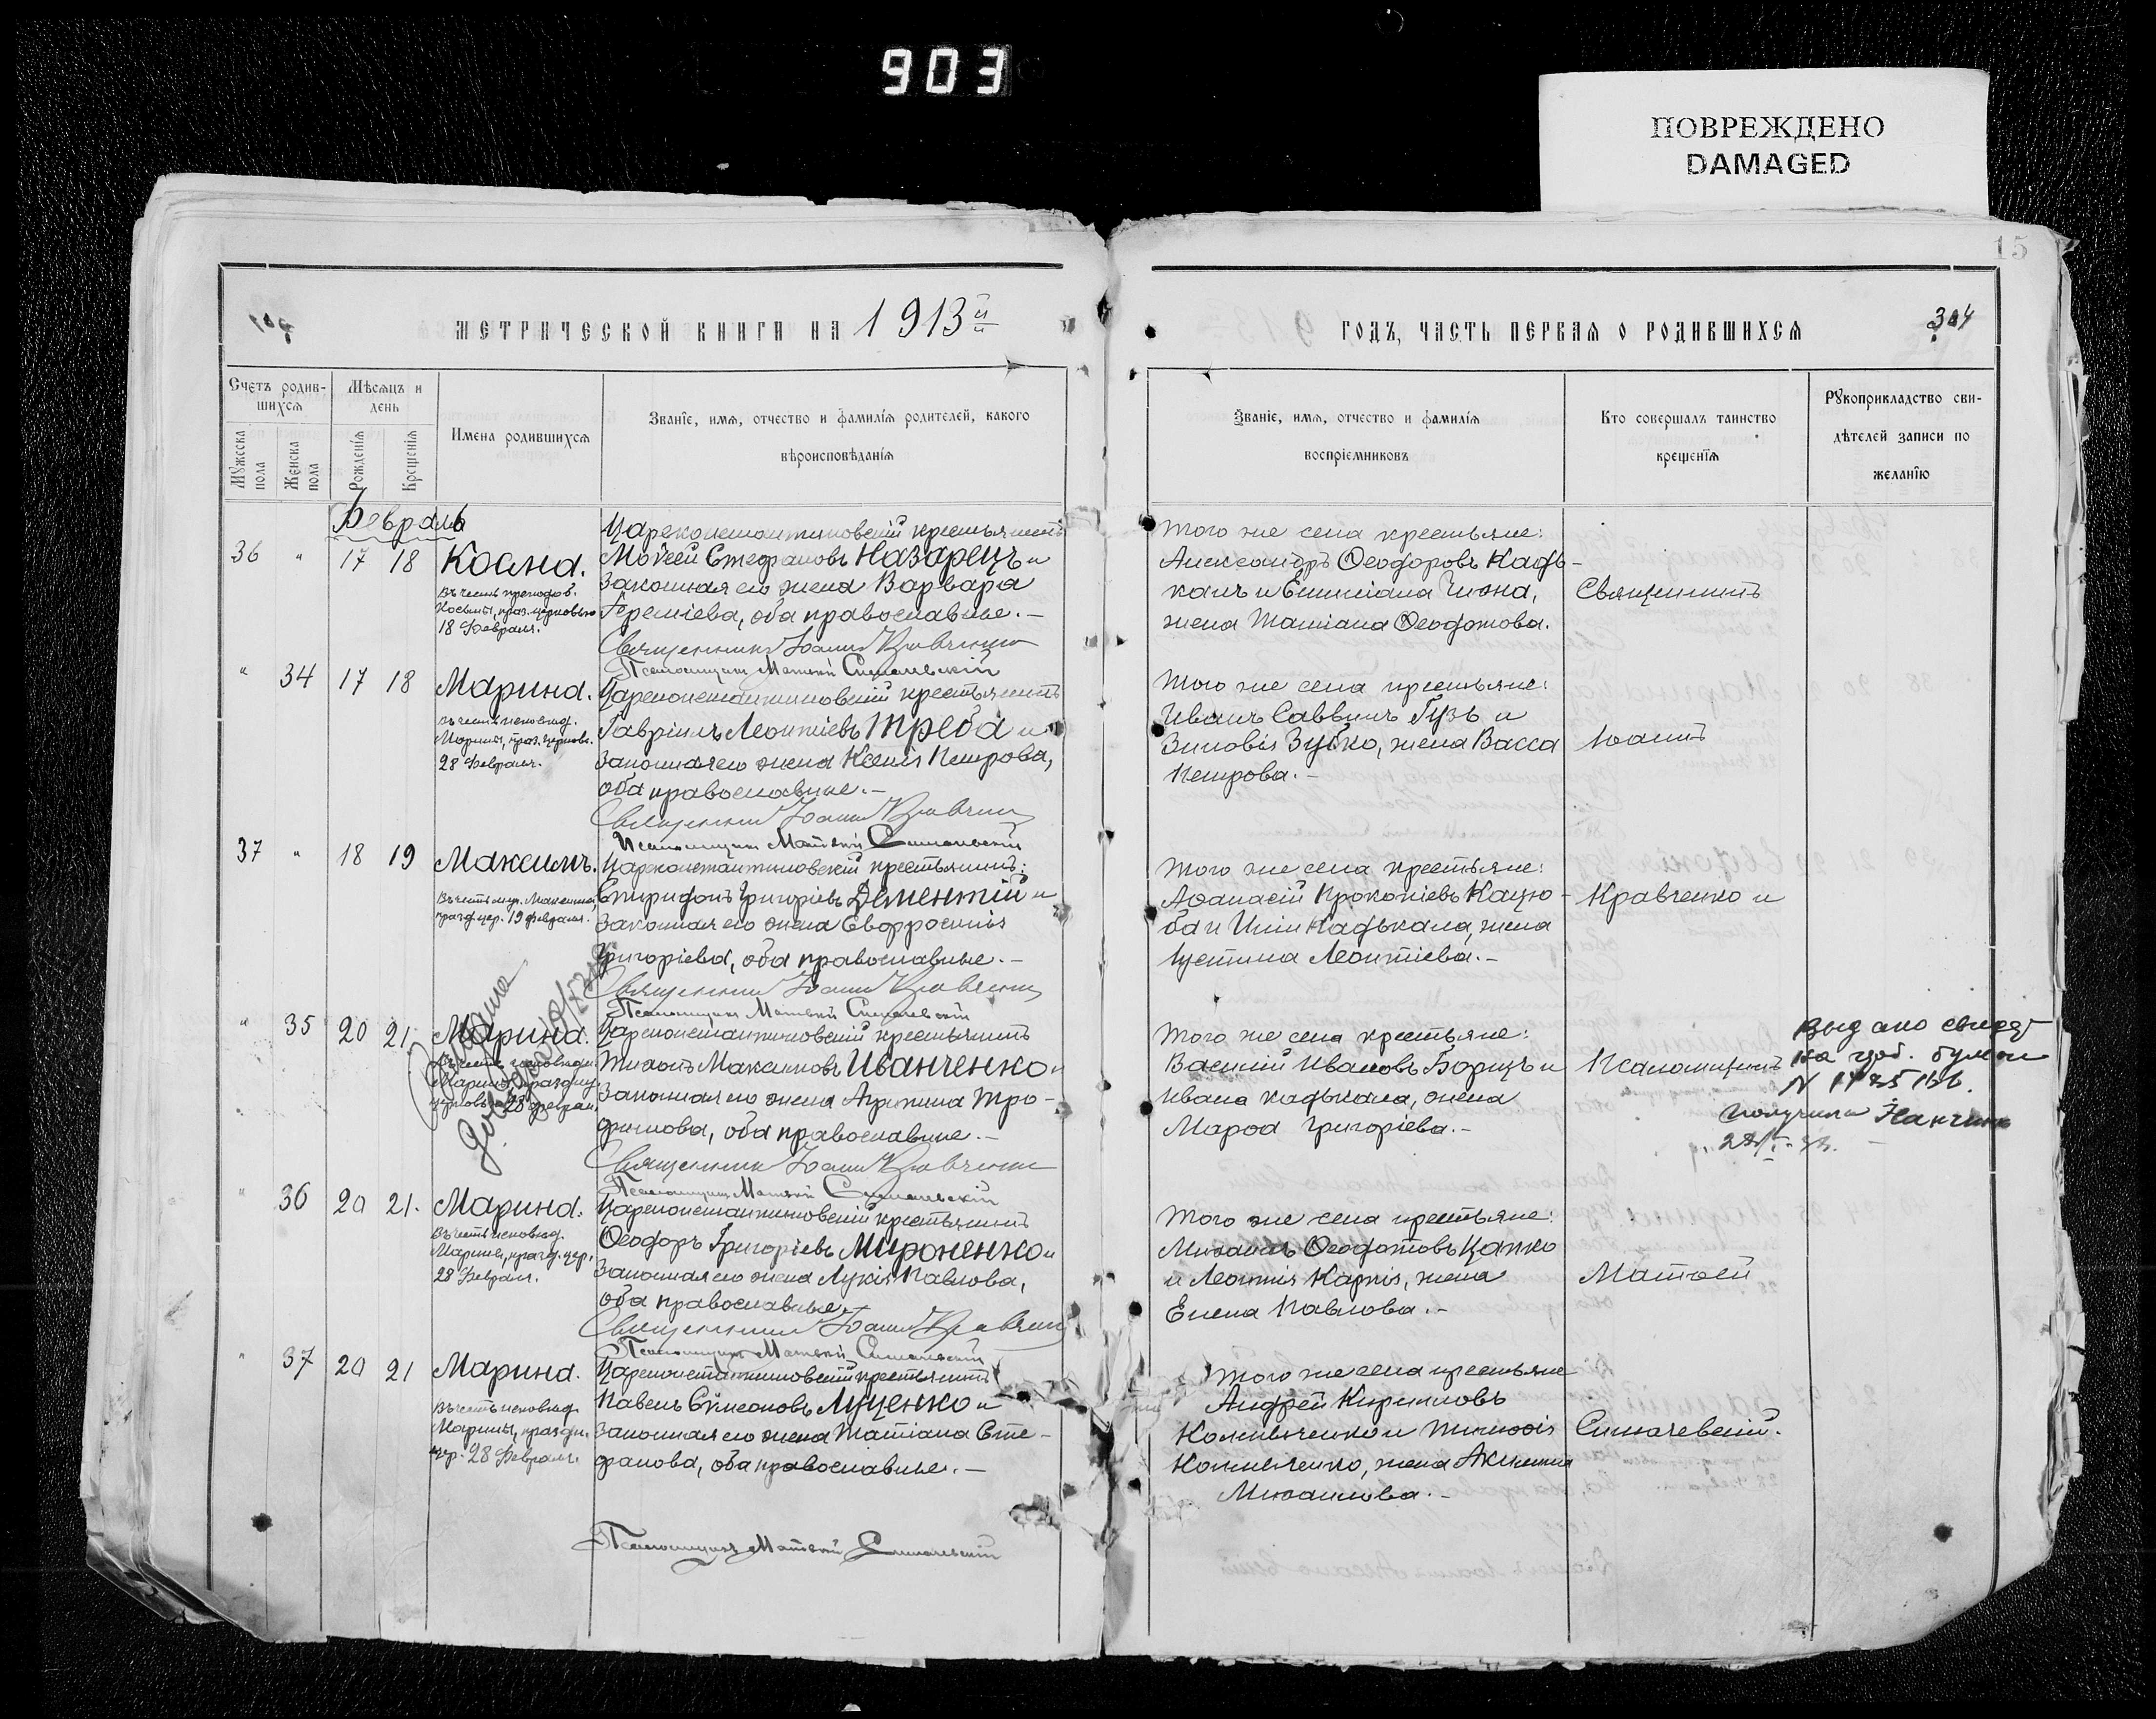 903
ПОВРЕЖДЕНО
DAMAGED
15
МЕТРИЧЕСКОЙ КНИГИ НА 1913й
ГОДЪ, ЧАСТЬ ПЕРВАЯ О РОДИВШИХСЯ
304
Счетъ родив-
шихся
Мужеска пола
Женска пола
Мѣсяцъ и
день
Рожденія
Крещенія
Имена родившихся
Званіе, имя, отчество и фамилія родителей, какого
вѣроисповѣданія
Званіе, имя, отчество и фамилія
воспріемниковъ
Кто совершалъ таинство
крещенія
Рукоприкладство сви-
дѣтелей записи по
желанію
Февраль
36 " 17 18 Косма.
Въ честь преподоб.
Космы, праз. церковью
18 Февраля.
Цареконстантиновскій крестьянинъ
Мойсей Стефановъ Назарецъ и
законная его жена Варвара
Іереміева, оба православные.-
Священникъ Іоаннъ Кравченко
Псаломщикъ Матѳей Сикачевскій
Того же села крестьяне:
Александръ Ѳеодоровъ Кадь-
калъ и Емиліана Гиона,
жена Татіана Ѳеодотова.
Священникъ
" 34 17 18 Марина.
Въ честь исповѣд.
Марины, праз. церковь.
28 Февраля.
Цареконстантиновскій крестьянинъ
Гавріилъ Леонтіевъ Треба и
законная его жена Ксенія Петрова,
оба православные.-
Священникъ Іоаннъ Кравченко
Псаломщикъ Матѳей Сикачевскій
Того же села крестьяне:
Иванъ Саввинъ Гузь и
Зиновія Зубко, жена Васса
Петрова.-
Іоаннъ
37 " 18 19 Максимъ.
Въ честь муч. Максима,
празд. цер. 19 февраля.
Цареконстантиновскій крестьянинъ:
Спиридонъ Григоріевъ Дементій и
законная его жена Евфросинія
Григоріева, оба православные.-
Священникъ Іоаннъ Кравченко
Псаломщикъ Матѳей Сикачевскій
Того же села крестьяне:
Аѳанасій Прокопіевъ Кацю-
ба и Иліи Кадькала, жена
Іустина Леонтіева.-
Кравченко и
" 35 20 21 Марина.
Въ честь исповѣдн.
Марины, праздну.
церковью 28 Феврал.
Цареконстантиновскій крестьянинъ
Тихонъ Максимовъ Иванченко и
законная его жена Агрипина Тро-
фимова, оба православные.-
Священникъ Іоаннъ Кравченко
Псаломщикъ Матѳей Сикачевскій
Того же села крестьяне:
Василій Ивановъ Борецъ и
Ивана Кадькала, жена
Марѳа Григоріева.-
Псаломщикъ
Выдано свидет
на
N
получила
" 36 20 21. Марина.
Въ честь исповѣд.
Марины, празд. цер.
28 Февраля.
Цареконстантиновскій крестьянинъ
Ѳеодоръ Григоріевъ Мироненко и
законная его жена Лукія Павлова,
оба православные.-
Священникъ Іоаннъ Кравченко
Псаломщикъ Матѳей Сикачевскій
Того же села крестьяне:
Михаилъ Ѳеодотовъ Цапко
и Леонтія Карпія, жена
Елена Павлова.-
Матѳей
" 37 20 21 Марина.
Въ честь исповѣд.
Марины, праздн.
цер. 28 Февраля
Цареконстантиновскій крестьянинъ
Павелъ Сѵмеоновъ Луценко и
законная его жена Татіана Сте-
фанова, оба православные.-
Псаломщикъ Матѳей Сикачевскій
Того же села крестьяне
Андрей Кирилловъ
Коломійченко и Тимоѳія
жена Акилина
Михаилова.-
Сикачевскій.